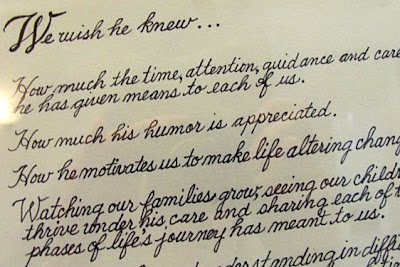 We wish he knew...
How much the time, attention, guidance and care
he has given means to each of us.
How much his humor is appreciated.
How he motivates us to make life altering chang
Watching our families grow, seeing our childr
thrive under his care and sharing each of t
phases of life's journey has meant to us.
understanding in diffi